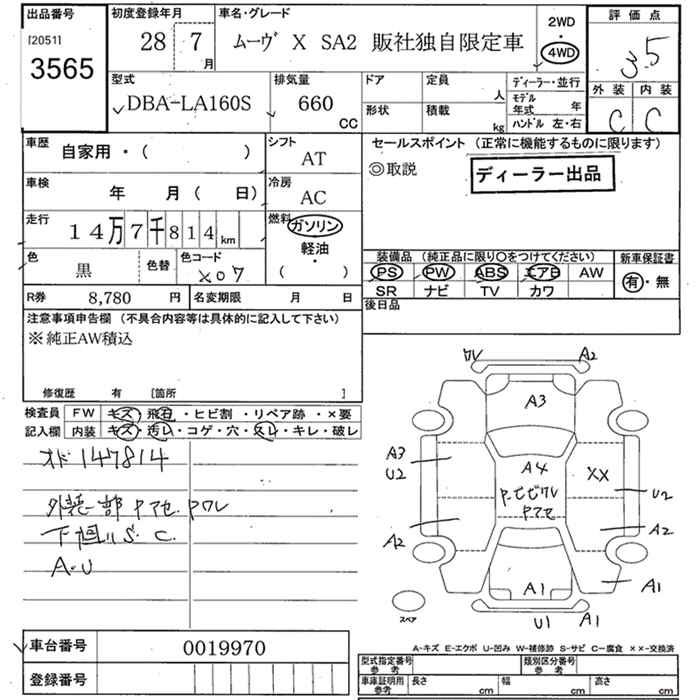 出品番号
[2051]
3565
初度登録年月
28年 7月
車名・グレード
ムーヴ X SA2 販社独自限定車
2WD
・
4WD
評価点
3.5
外装 内装
C C
型式
DBA-LA160S
排気量
660
CC
ドア
定員
人
ディーラー・並行
形状
積載
kg
モデル年式 年
ハンドル 左・右
車歴
自家用・( )
シフト
AT
セールスポイント (正常に機能するものに限ります)
◎取説
ディーラー出品
車検
年 月( 日)
冷房
AC
走行
14万7千814km
燃料
ガソリン
軽油
・
( )
色
黒
色替
色コード
X07
装備品 (純正品に限り○をつけてください)
PS PW ABS エアB AW
SR ナビ TV カワ
新車保証書
有・無
R券 8,780 円
名変期限 月 日
後日品
注意事項申告欄 (不具合内容等は具体的に記入して下さい)
※純正AW積込
修復歴 有 [箇所 ]
検査員 FW キズ・飛石・ヒビ割・リペア跡・×要
記入欄 内装 キズ・汚レ・コゲ・穴・スレ・キレ・破レ
オド147814
外装一部Pアセ.Pワレ
下廻りS.C.
A.U
ワレ
A2
A3
A3
U2
A4
P.ヒビワレ
Pアセ
XX
U2
A2
A2
A1
A1
U1
A1
スペア
A-キズ E-エクボ U-凹み W-補修跡 S-サビ C-腐食 ××-交換済
車台番号
0019970
登録番号
型式指定番号
参考
類別区分番号
参考
車庫証明用
参考
長さ cm
幅 cm
高さ cm